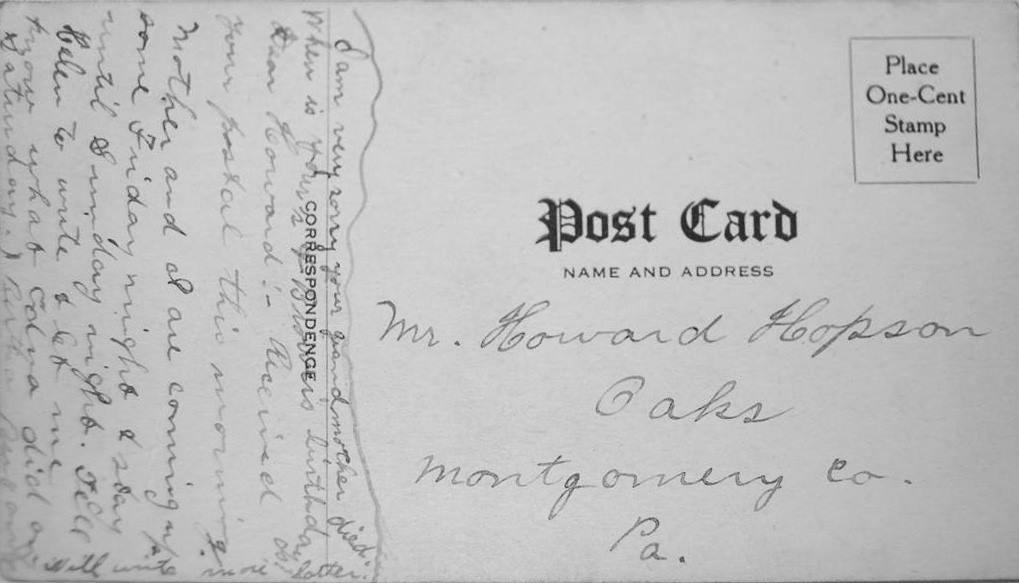 I am very sorry your grandmother died.
When is yours & Brothers birthday
CORRESPONDENCE
Dear Howard:- Received
your postal this morning.
Mother and I are coming up
some Friday night & stay
until Sunday night. Tell
Helen to write & let me
know what Edna did on
Saturday.
Will write more later.
Place
One-Cent
Stamp
Here
Post Card
NAME AND ADDRESS
Mr. Howard Hopson
Oaks
Montgomery Co.
Pa.